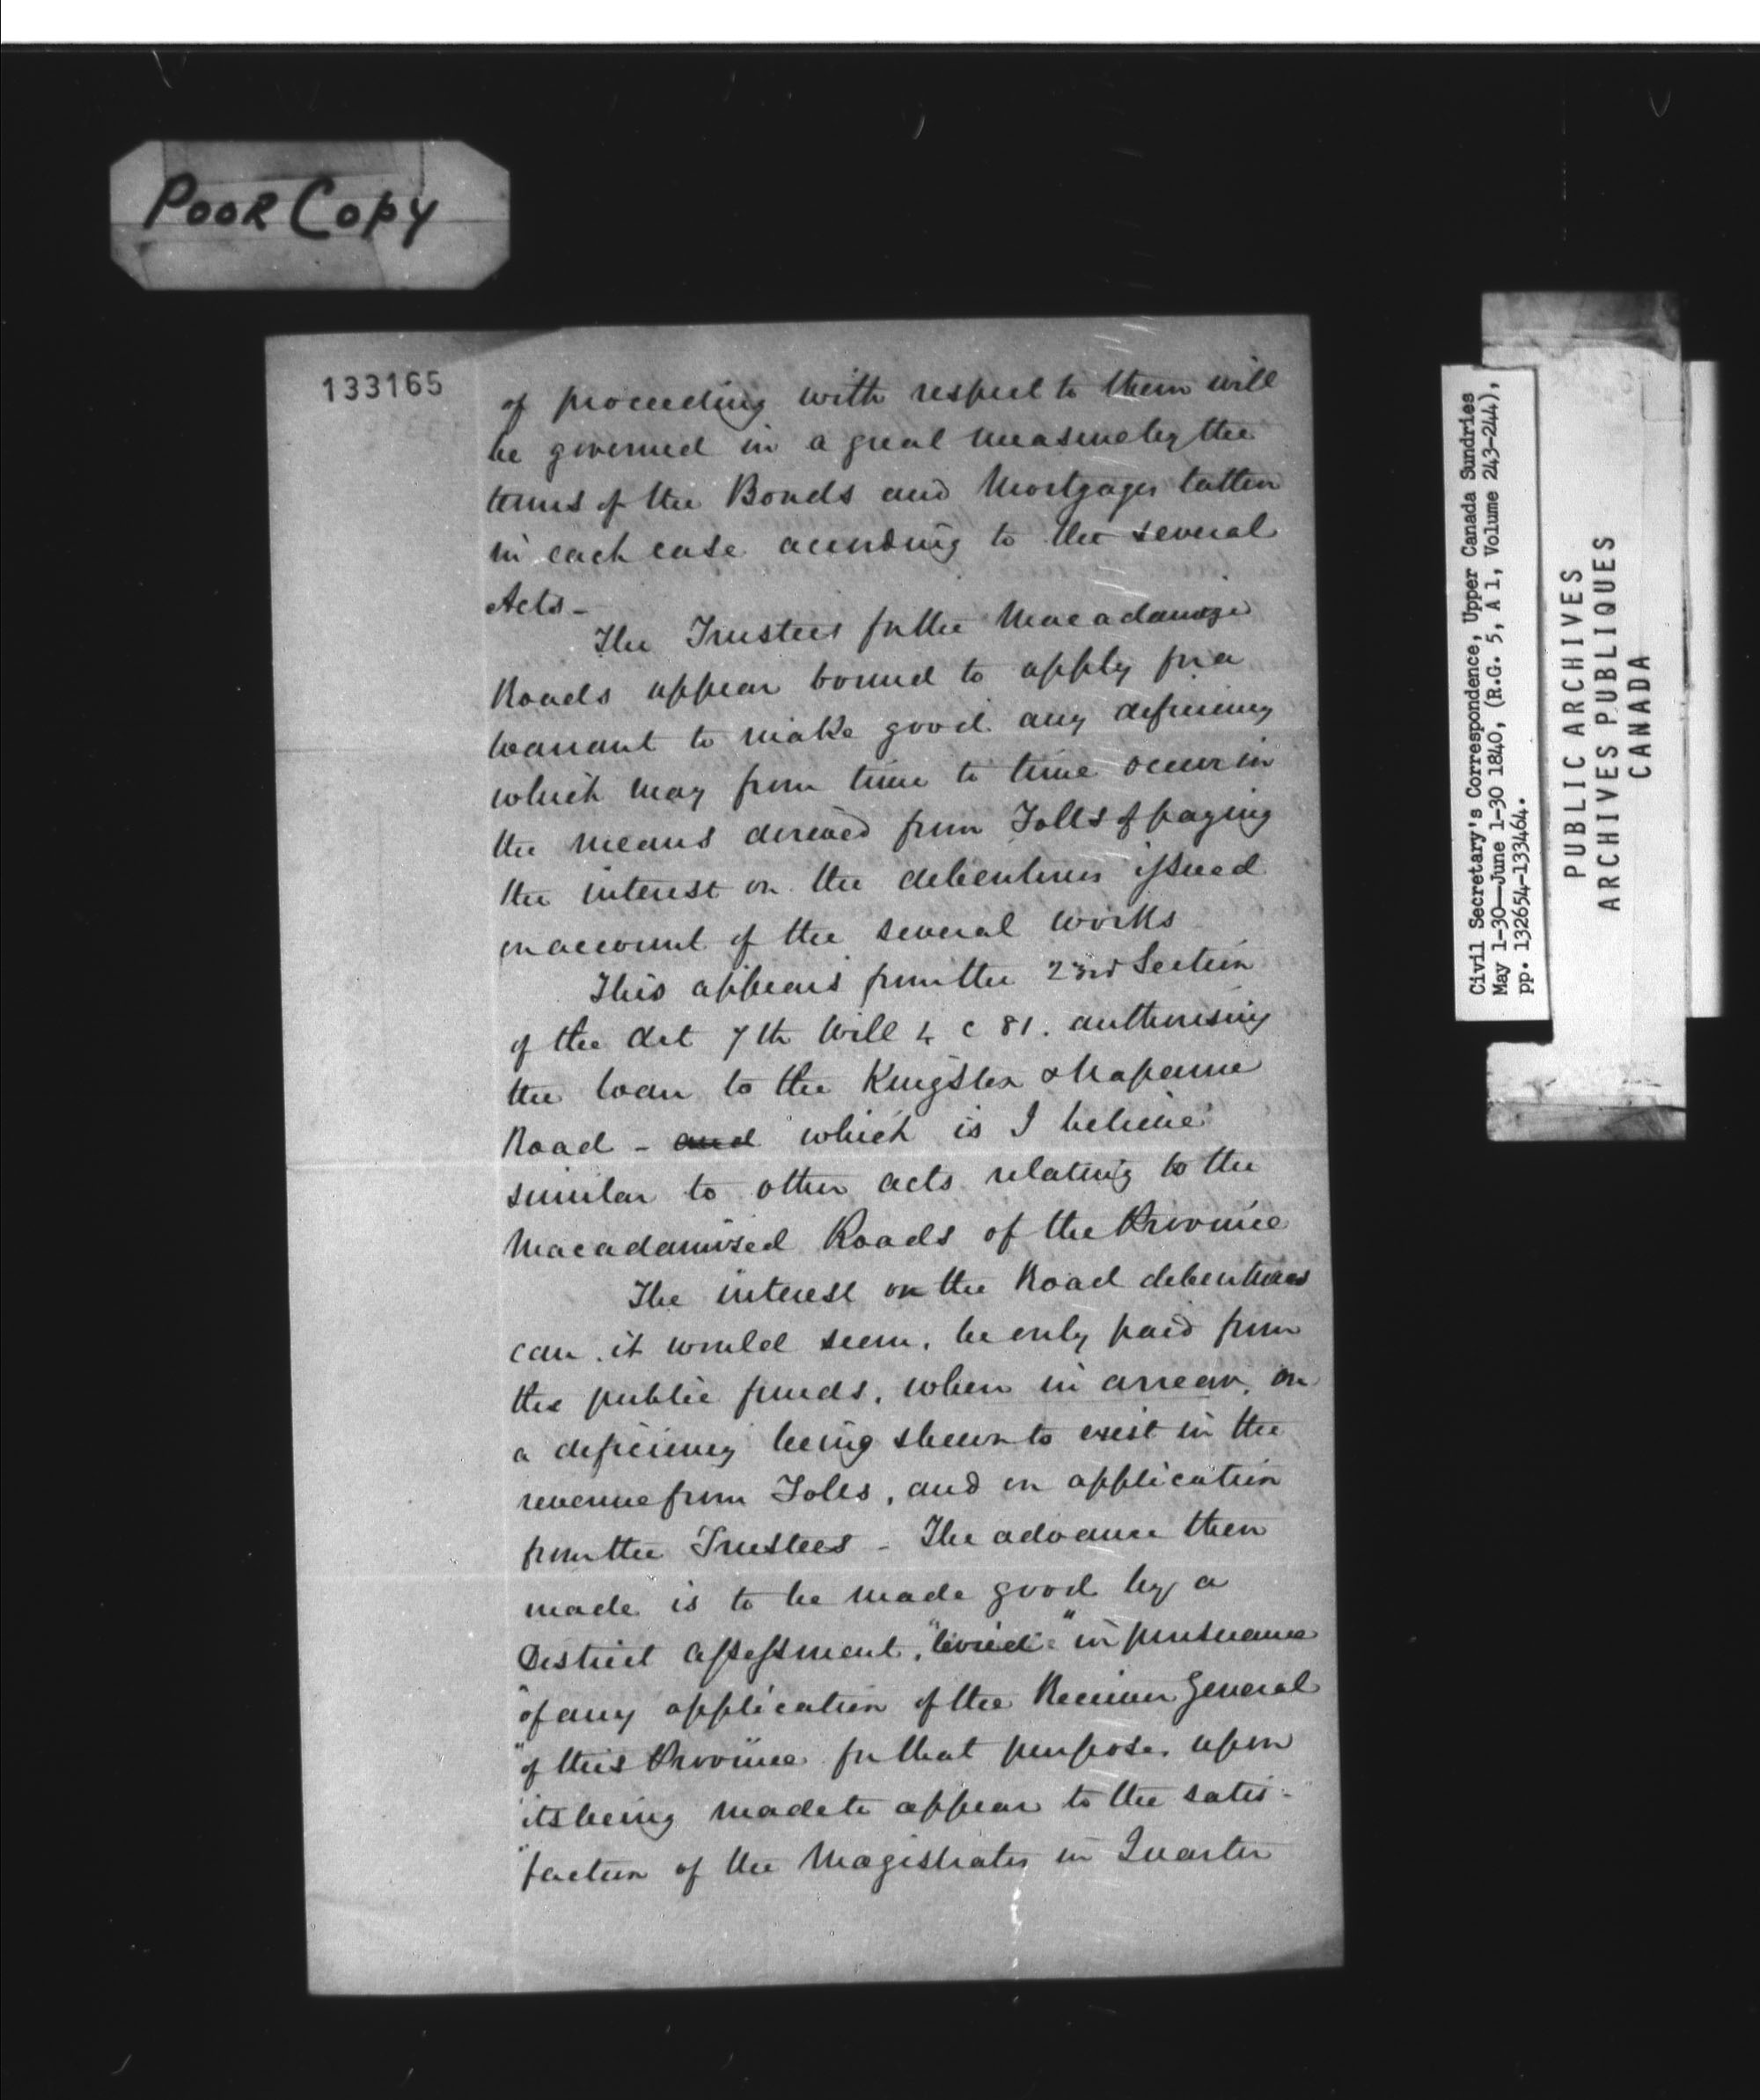 POOR COPY
133165
of proceeding with respect to them will
be governed in a great measure by the
terms of the Bonds and Mortgages taken
in each case according to the several
Acts -
The Trustees for the Macadamize
Roads appear bound to apply for a
warrant to make good any deficiency
which may from time to time occur in
the means derived from Tolls of paying
the interest on the debentures issued
on account of the several works
This appears from the 23rd Section
of the Act 7th Will 4 c 81. authorising
the loan to the Kingston & Napanee
Road - and which is I believe
similar to other acts relating to the
Macadamized Roads of the Province
The interest on the Road debentures
can. it would seem, be only paid from
the public funds, when in arrear, on
a deficiency being shewn to exist in the
revenue from Tolls, and on application
from the Trustees - The advance then
made is to be made good by a
District assessment, "levied" in pursuance
"of any application of the Receiver General
"of this Province for that purpose, upon
"its being made to appear to the satis-
"faction of the Magistrates in Quarter
Civil Secretary's Correspondence, Upper Canada Sundries
May 1-30—June 1-30 1840, (R.G. 5, A 1, Volume 243-244),
pp. 132654-133464.
PUBLIC ARCHIVES
ARCHIVES PUBLIQUES
CANADA